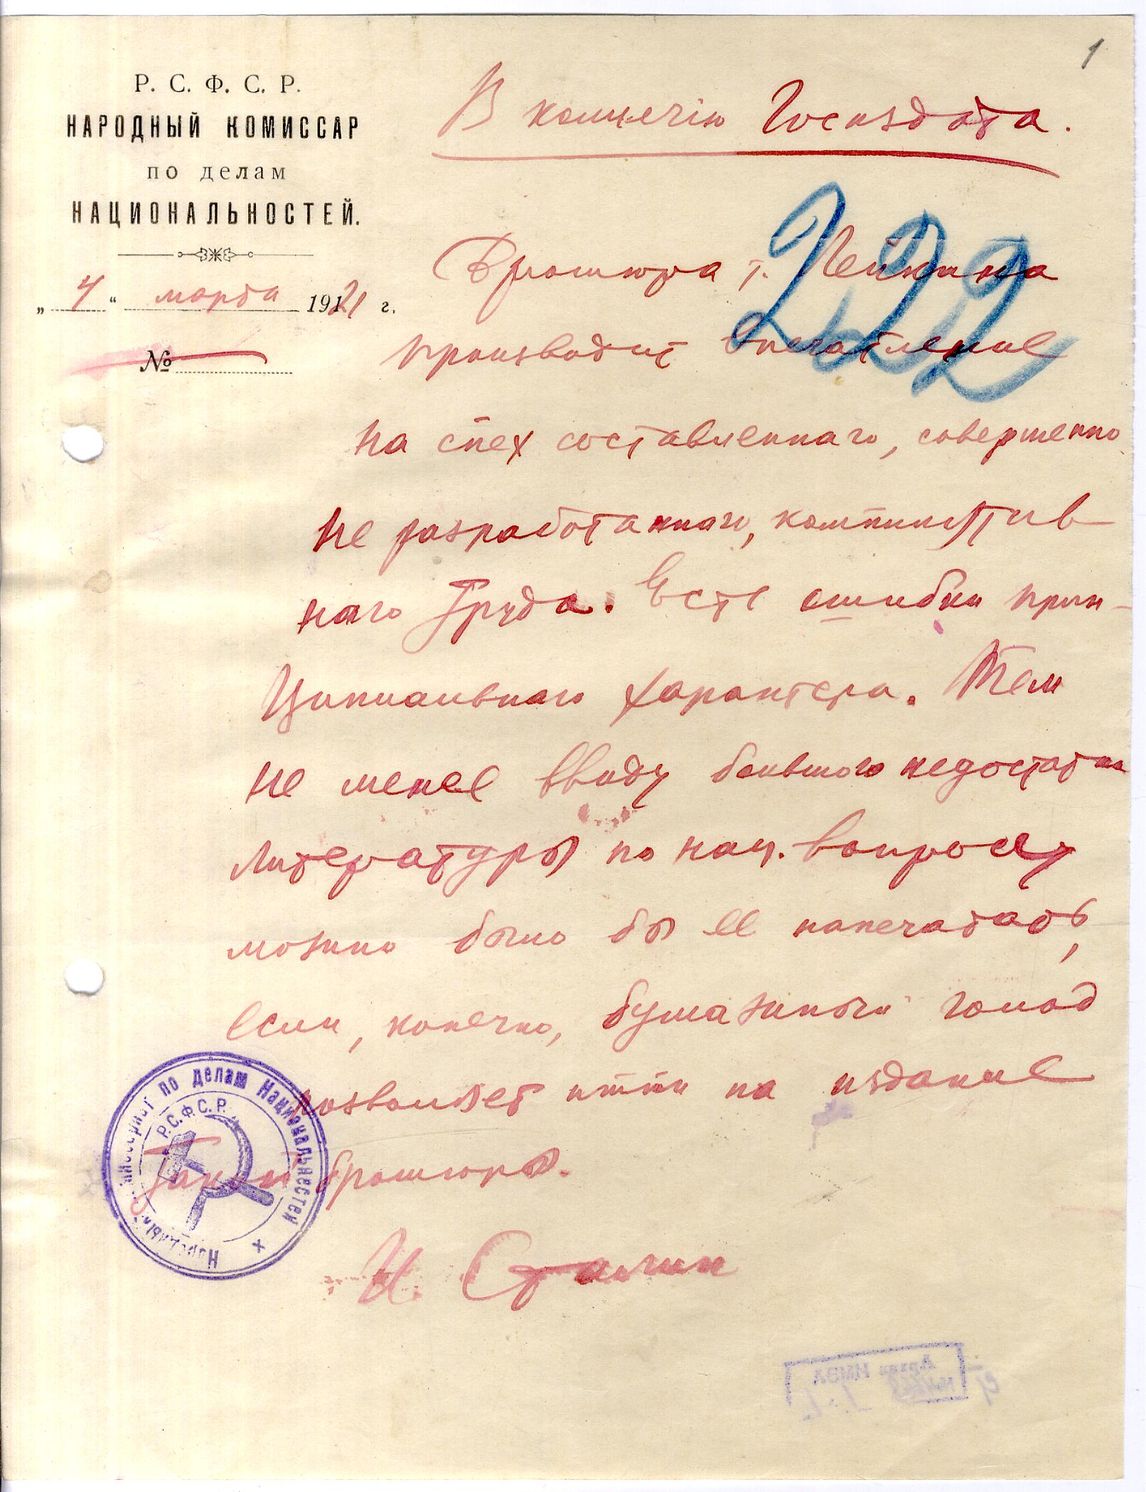 1
Р. С. Ф. С. Р.
НАРОДНЫЙ КОМИССАР
по делам
НАЦИОНАЛЬНОСТЕЙ.
„4“ марта 1921 г.
№
В коллегію Госиздата.
222
Брошюра т.
производит впечатление
на спех составленнаго, совершенно
не разработаннаго, компилятив-
наго труда. Есть ошибки прин-
ципиальнаго характера. Тем
не менее ввиду большого недостатка
литературы по нац. вопросу
можно было бы ее напечатать,
если, конечно, бумажный голод
позволяет итти на издание
такой брошюры.
И. Сталин
Народный Комиссариат по делам Национальностей
Р.С.Ф.С.Р.
Архив ИМЭЛ